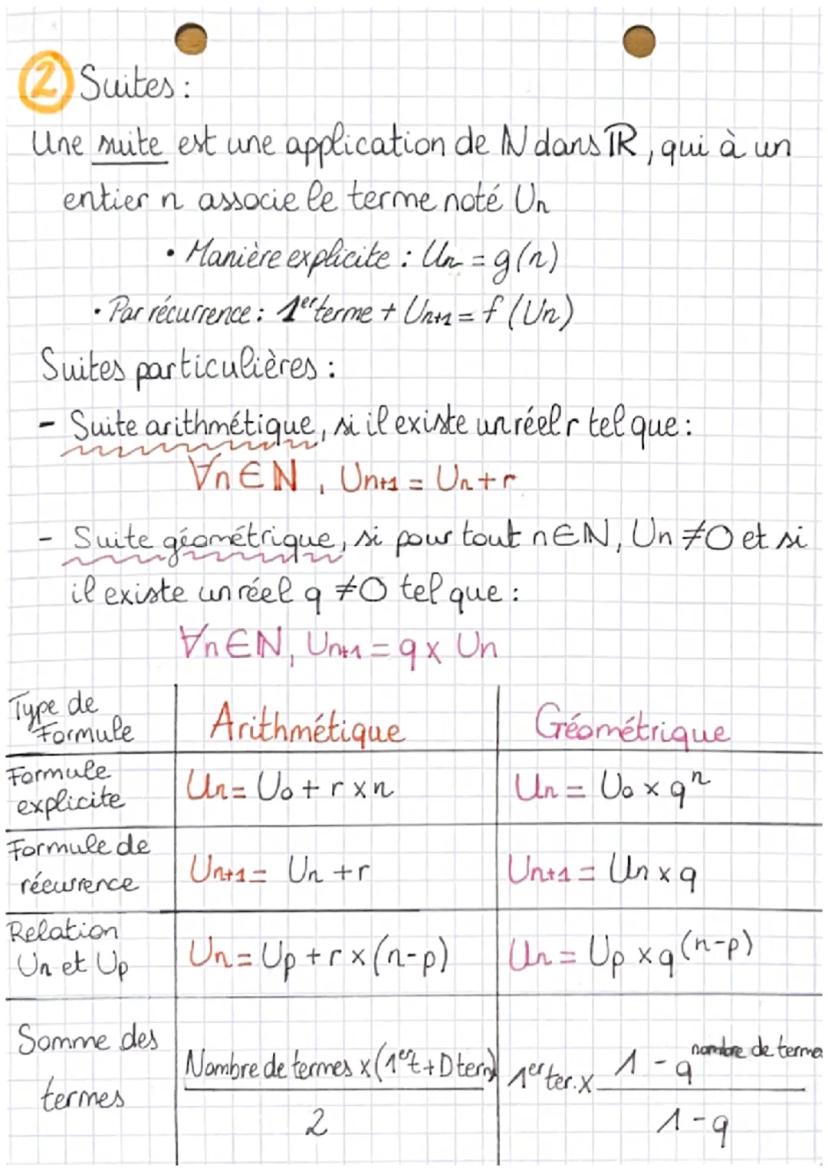 2 Suites :
Une suite est une application de ℕ dans ℝ, qui à un
entier n associe le terme noté Un
• Manière explicite : Un = g(n)
• Par récurrence : 1er terme + Un+1 = f (Un)
Suites particulières :
- Suite arithmétique, si il existe un réel r tel que :
∀n∈ℕ, Un+1 = Un + r
- Suite géométrique, si pour tout n∈ℕ, Un ≠ 0 et si
il existe un réel q ≠ 0 tel que :
∀n∈ℕ, Un+1 = q x Un
Type de Formule | Arithmétique | Géométrique
Formule explicite | Un = U0 + r x n | Un = U0 x q^n
Formule de récurrence | Un+1 = Un + r | Un+1 = Un x q
Relation Un et Up | Un = Up + r x (n-p) | Un = Up x q^(n-p)
Somme des termes | Nombre de termes x (1er t + D term) / 2 | 1er ter. x (1 - q^nombre de terme) / (1 - q)